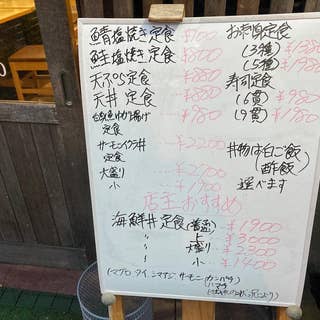 鯖塩焼き定食 ¥900
鮭塩焼き定食 ¥800
天ぷら定食 ¥880
天丼 定食 ¥880
白身魚のから揚げ定食 ¥980
サーモンイクラ丼定食 ¥2200
大盛り ¥2700
小 ¥1900
お刺身定食
(3種) ¥1380
(5種) ¥1980
寿司定食
(6貫) ¥980
(9貫) ¥1780
丼物は白ご飯
(酢飯)
選べます
店主おすすめ
海鮮丼定食(普通) ¥1900
〃 上 ¥3000
〃 大盛り ¥2500
〃 小 ¥1400
(マグロ、タイ、シマアジ、サーモン、カンパチ
ハマチ